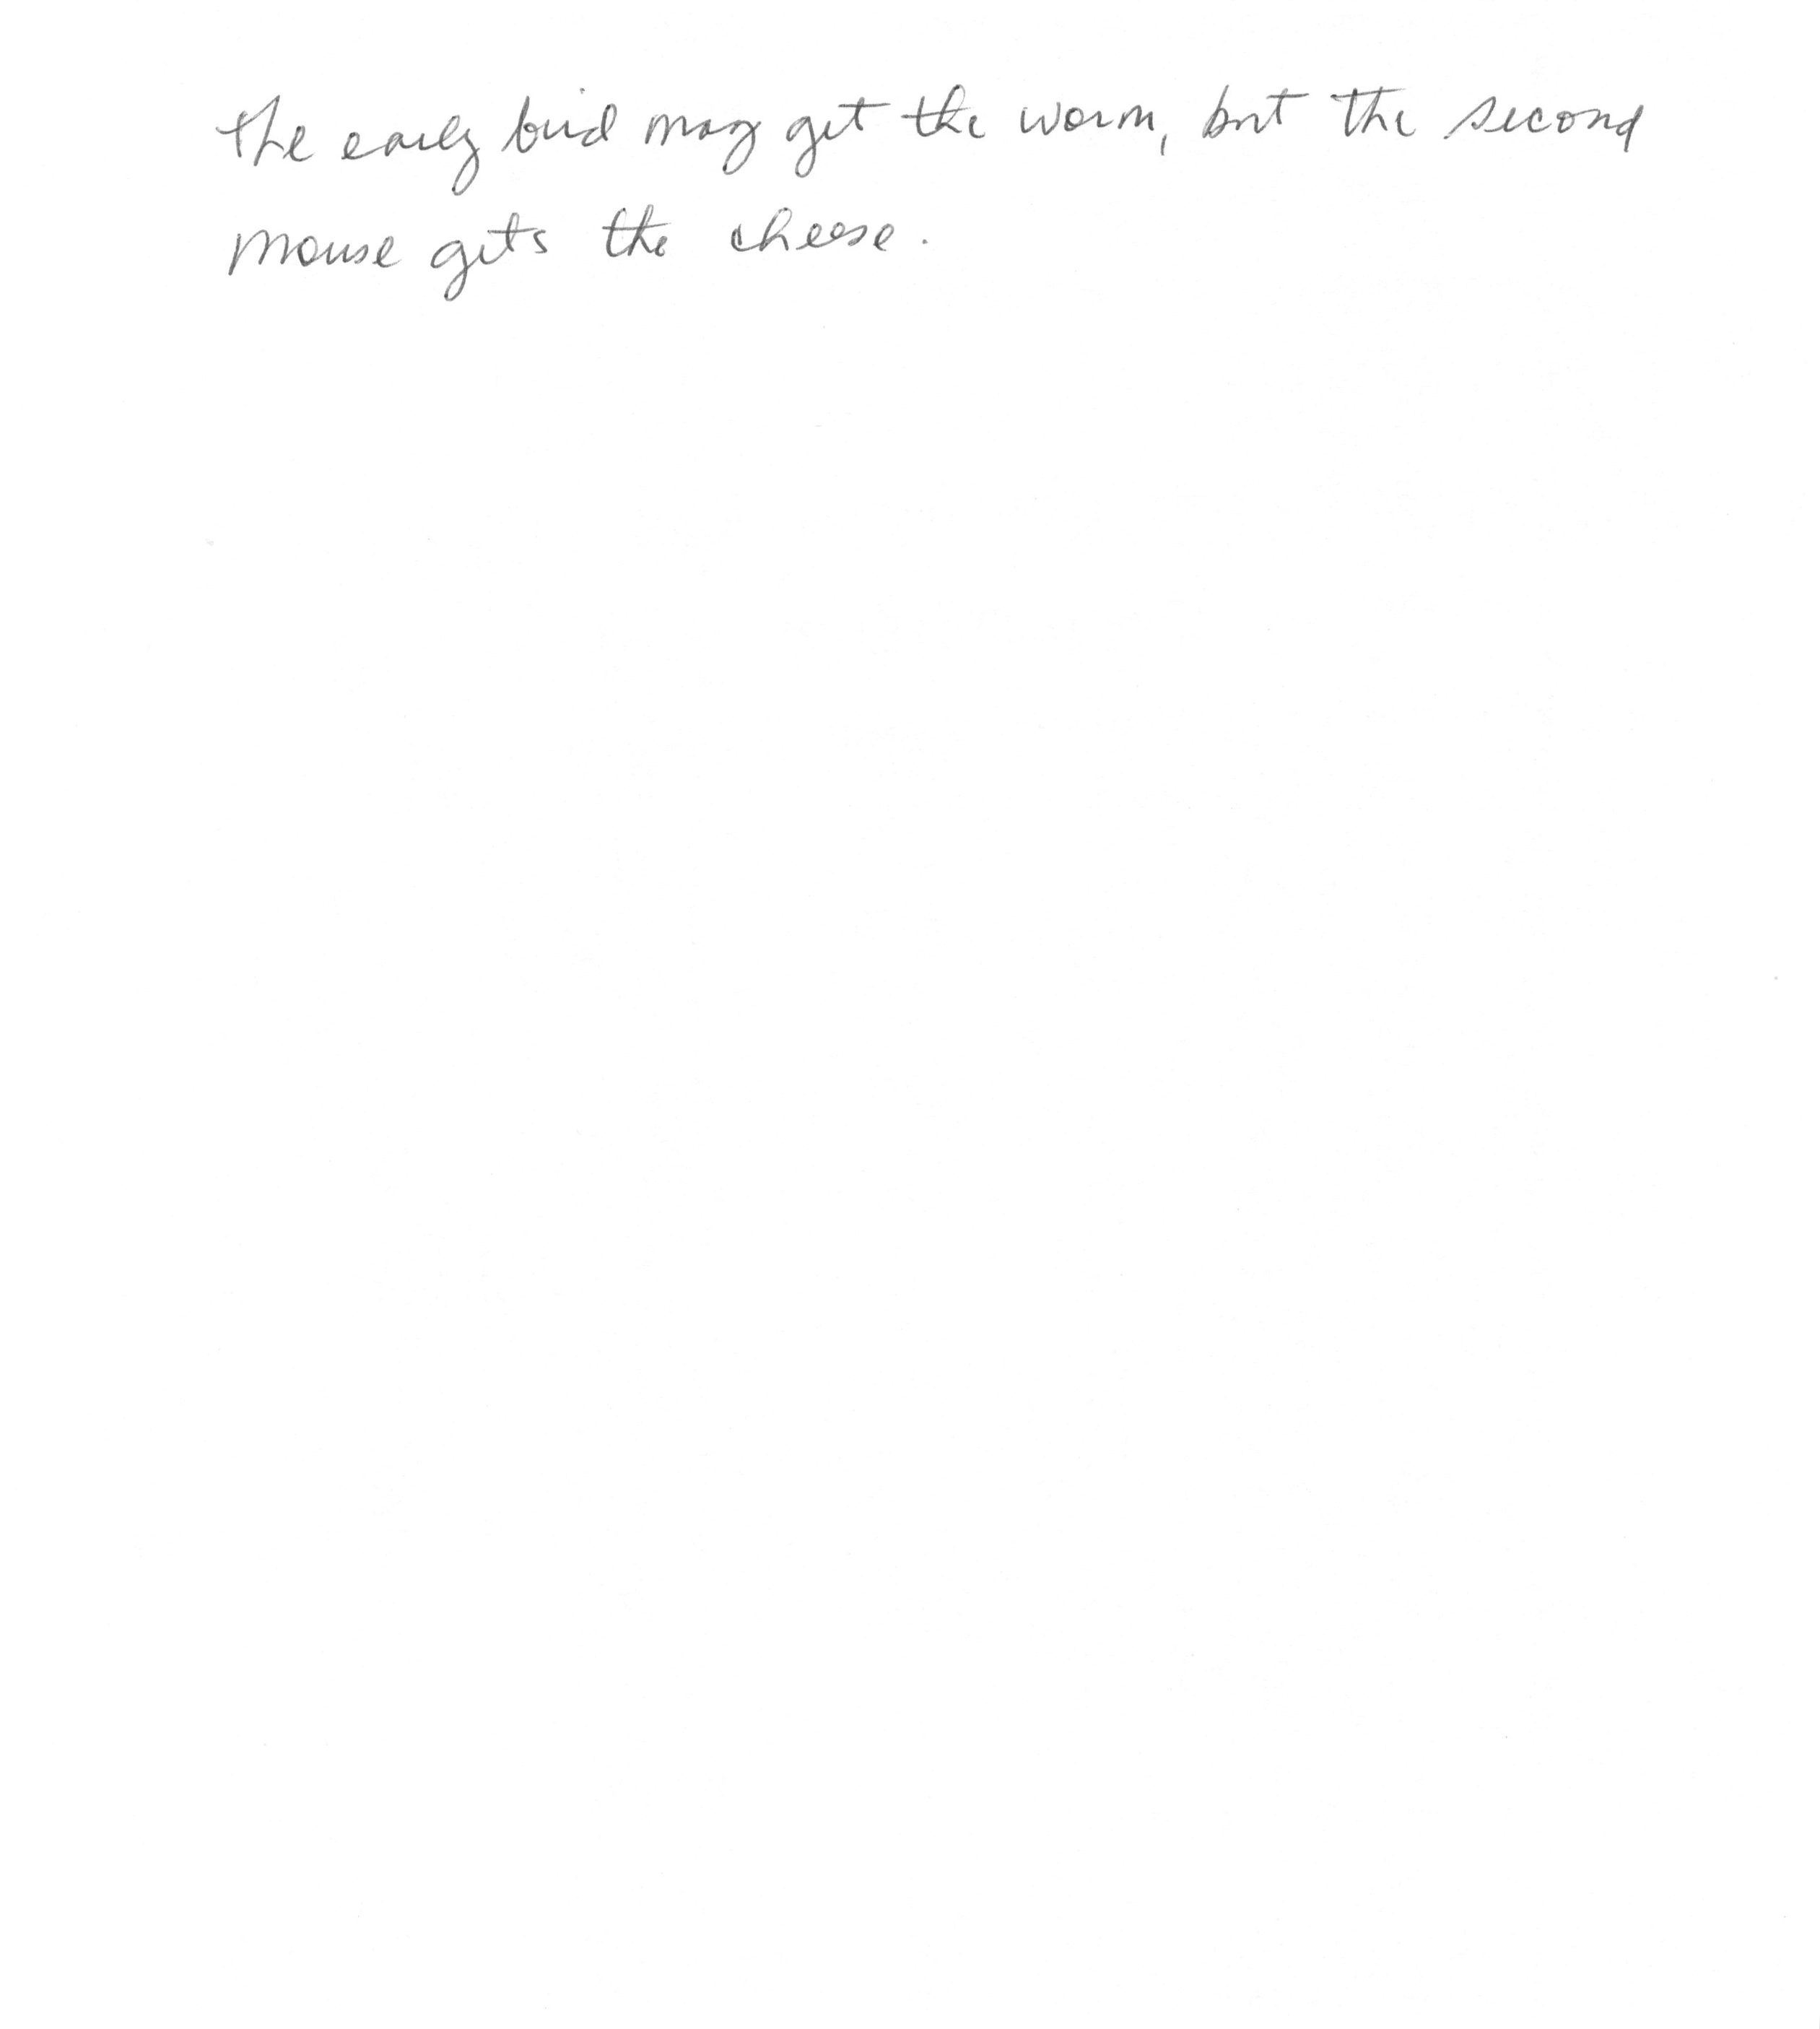 the early bird may get the worm, but the second
mouse gets the cheese.